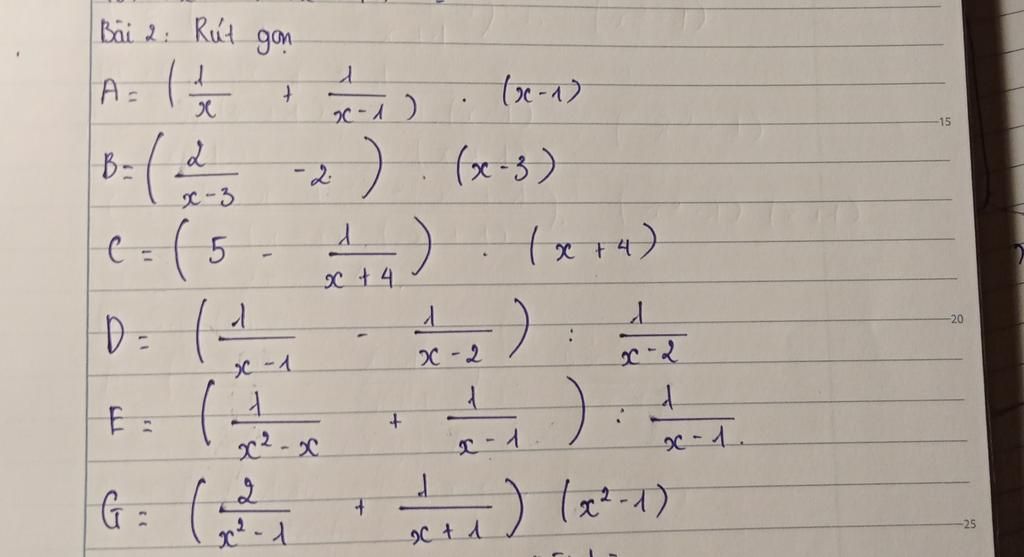 Bài 2: Rút gọn
A = (1/x + 1/(x-1)) . (x-1)
15
B = (2/(x-3) - 2) . (x-3)
C = (5 - 1/(x+4)) . (x+4)
D = (1/(x-1) - 1/(x-2)) : 1/(x-2)
20
E = (1/(x²-x) + 1/(x-1)) : 1/(x-1).
G = (2/(x²-1) + 1/(x+1)) (x²-1)
25